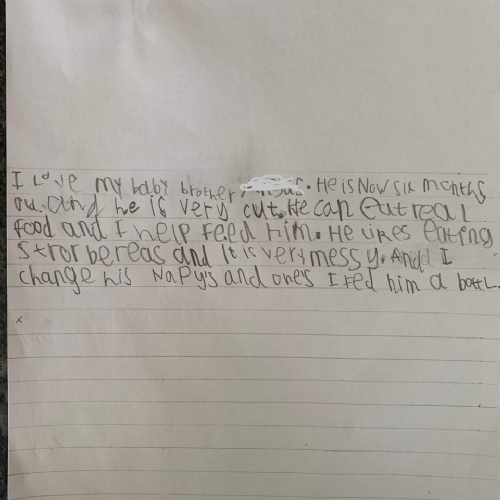 I Love my baby brother, . He is Now six months
old. and he is very cut. He can eat real
food and I help feed him. He likes eating
strorbereas and It is very messy. And I
change his Napys and ones I fed him a bottL.
x